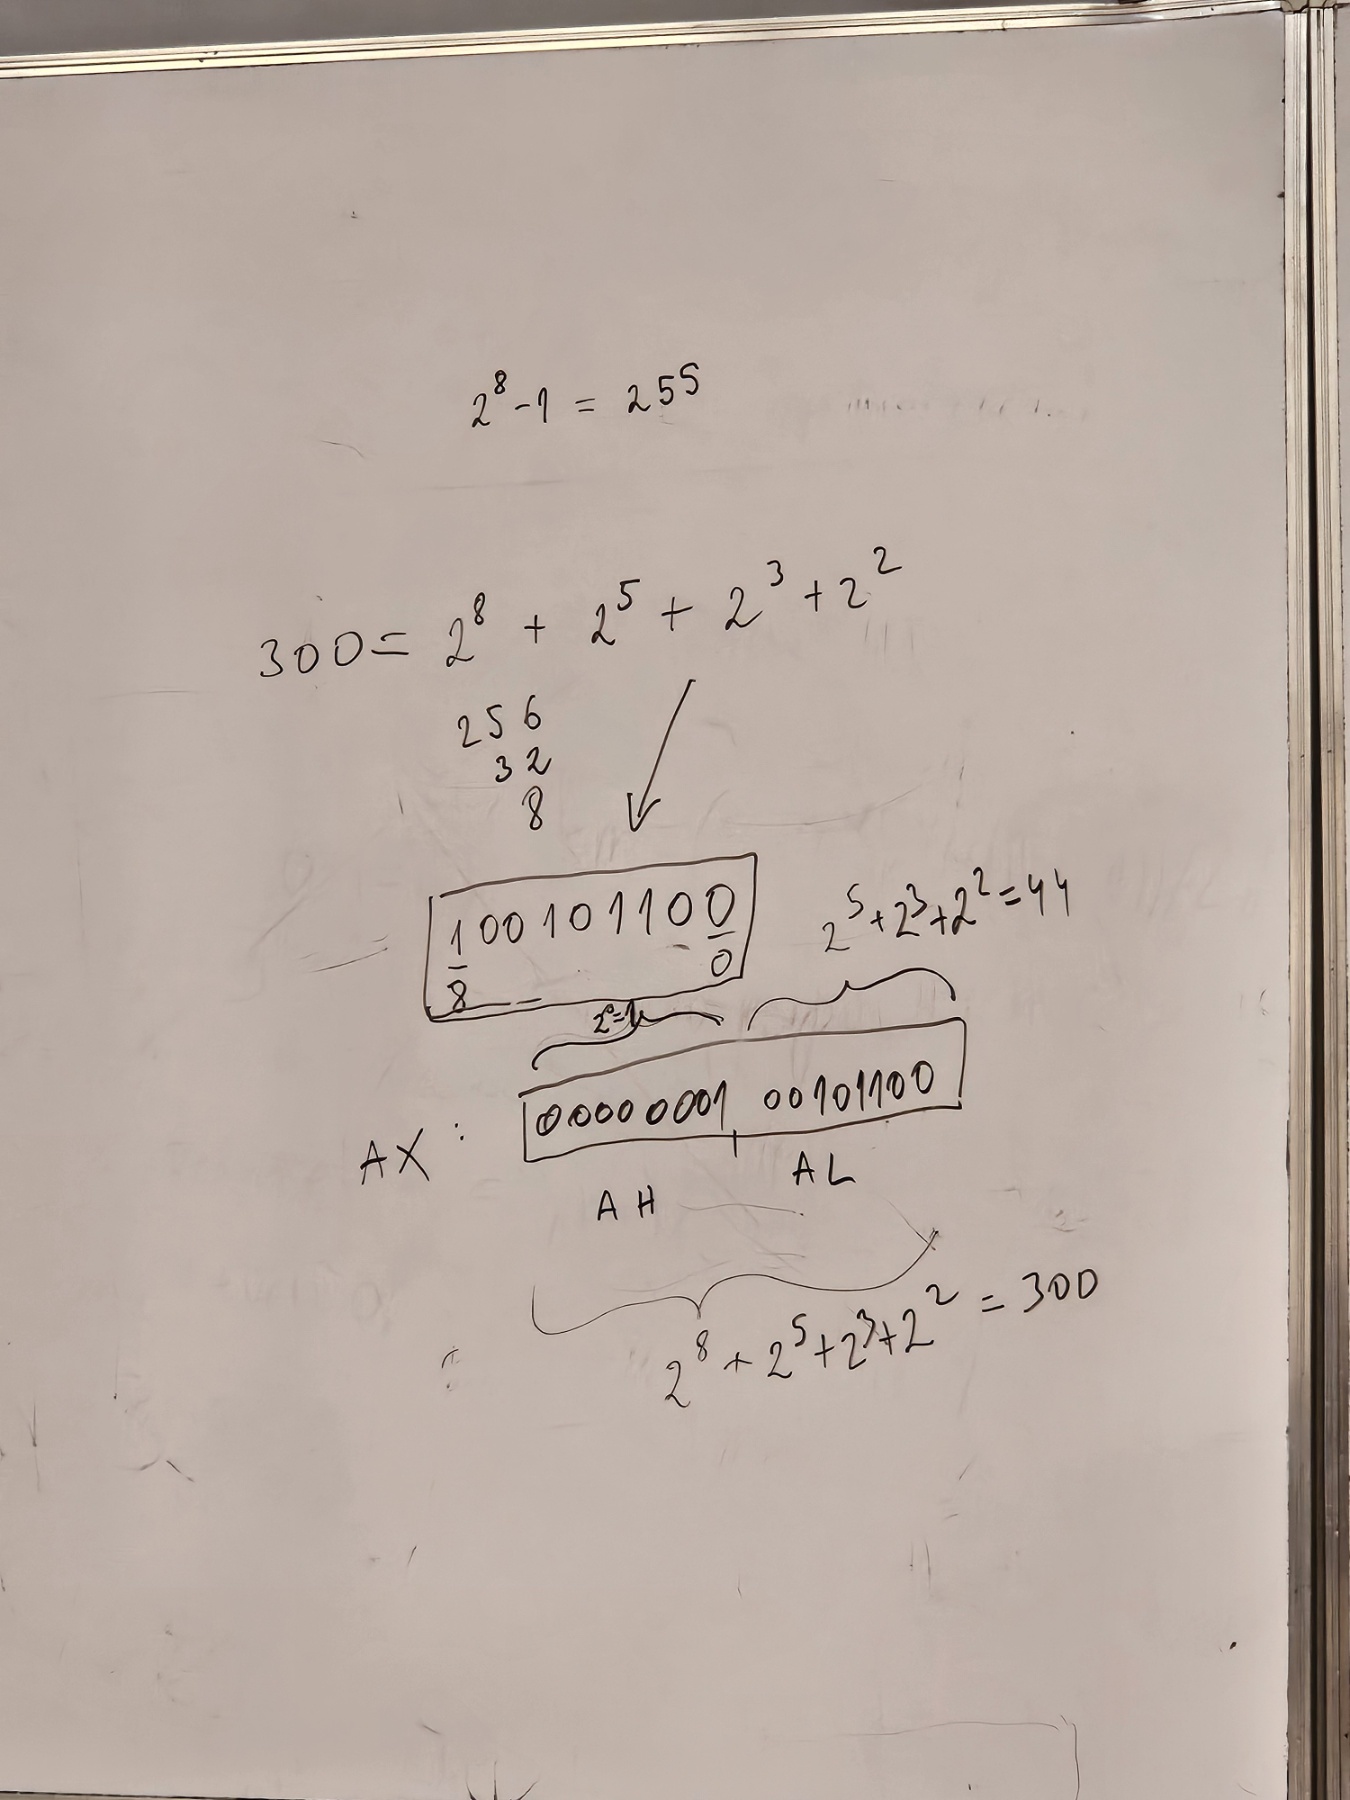 2⁸-1 = 255
300 = 2⁸ + 2⁵ + 2³ + 2²
256
32
8
100101100
8 0
2⁵+2³+2²=44
2⁰=1
AX: 00000001 00101100
AH AL
2⁸+2⁵+2³+2² = 300